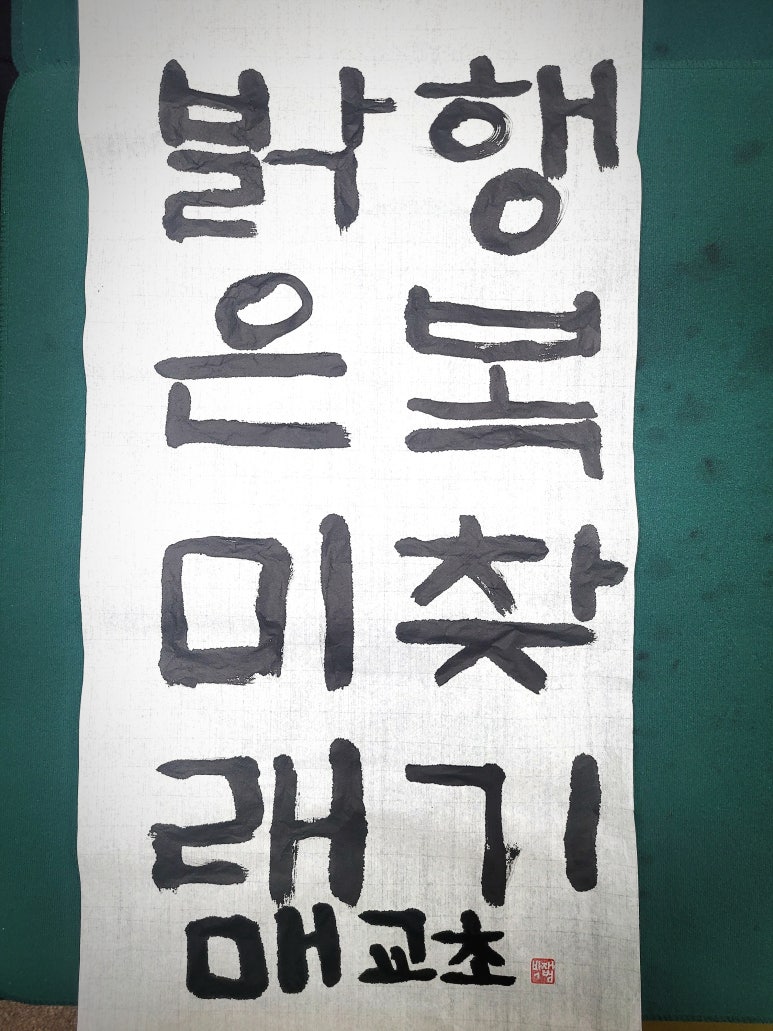 행복찾기
밝은미래
매교초